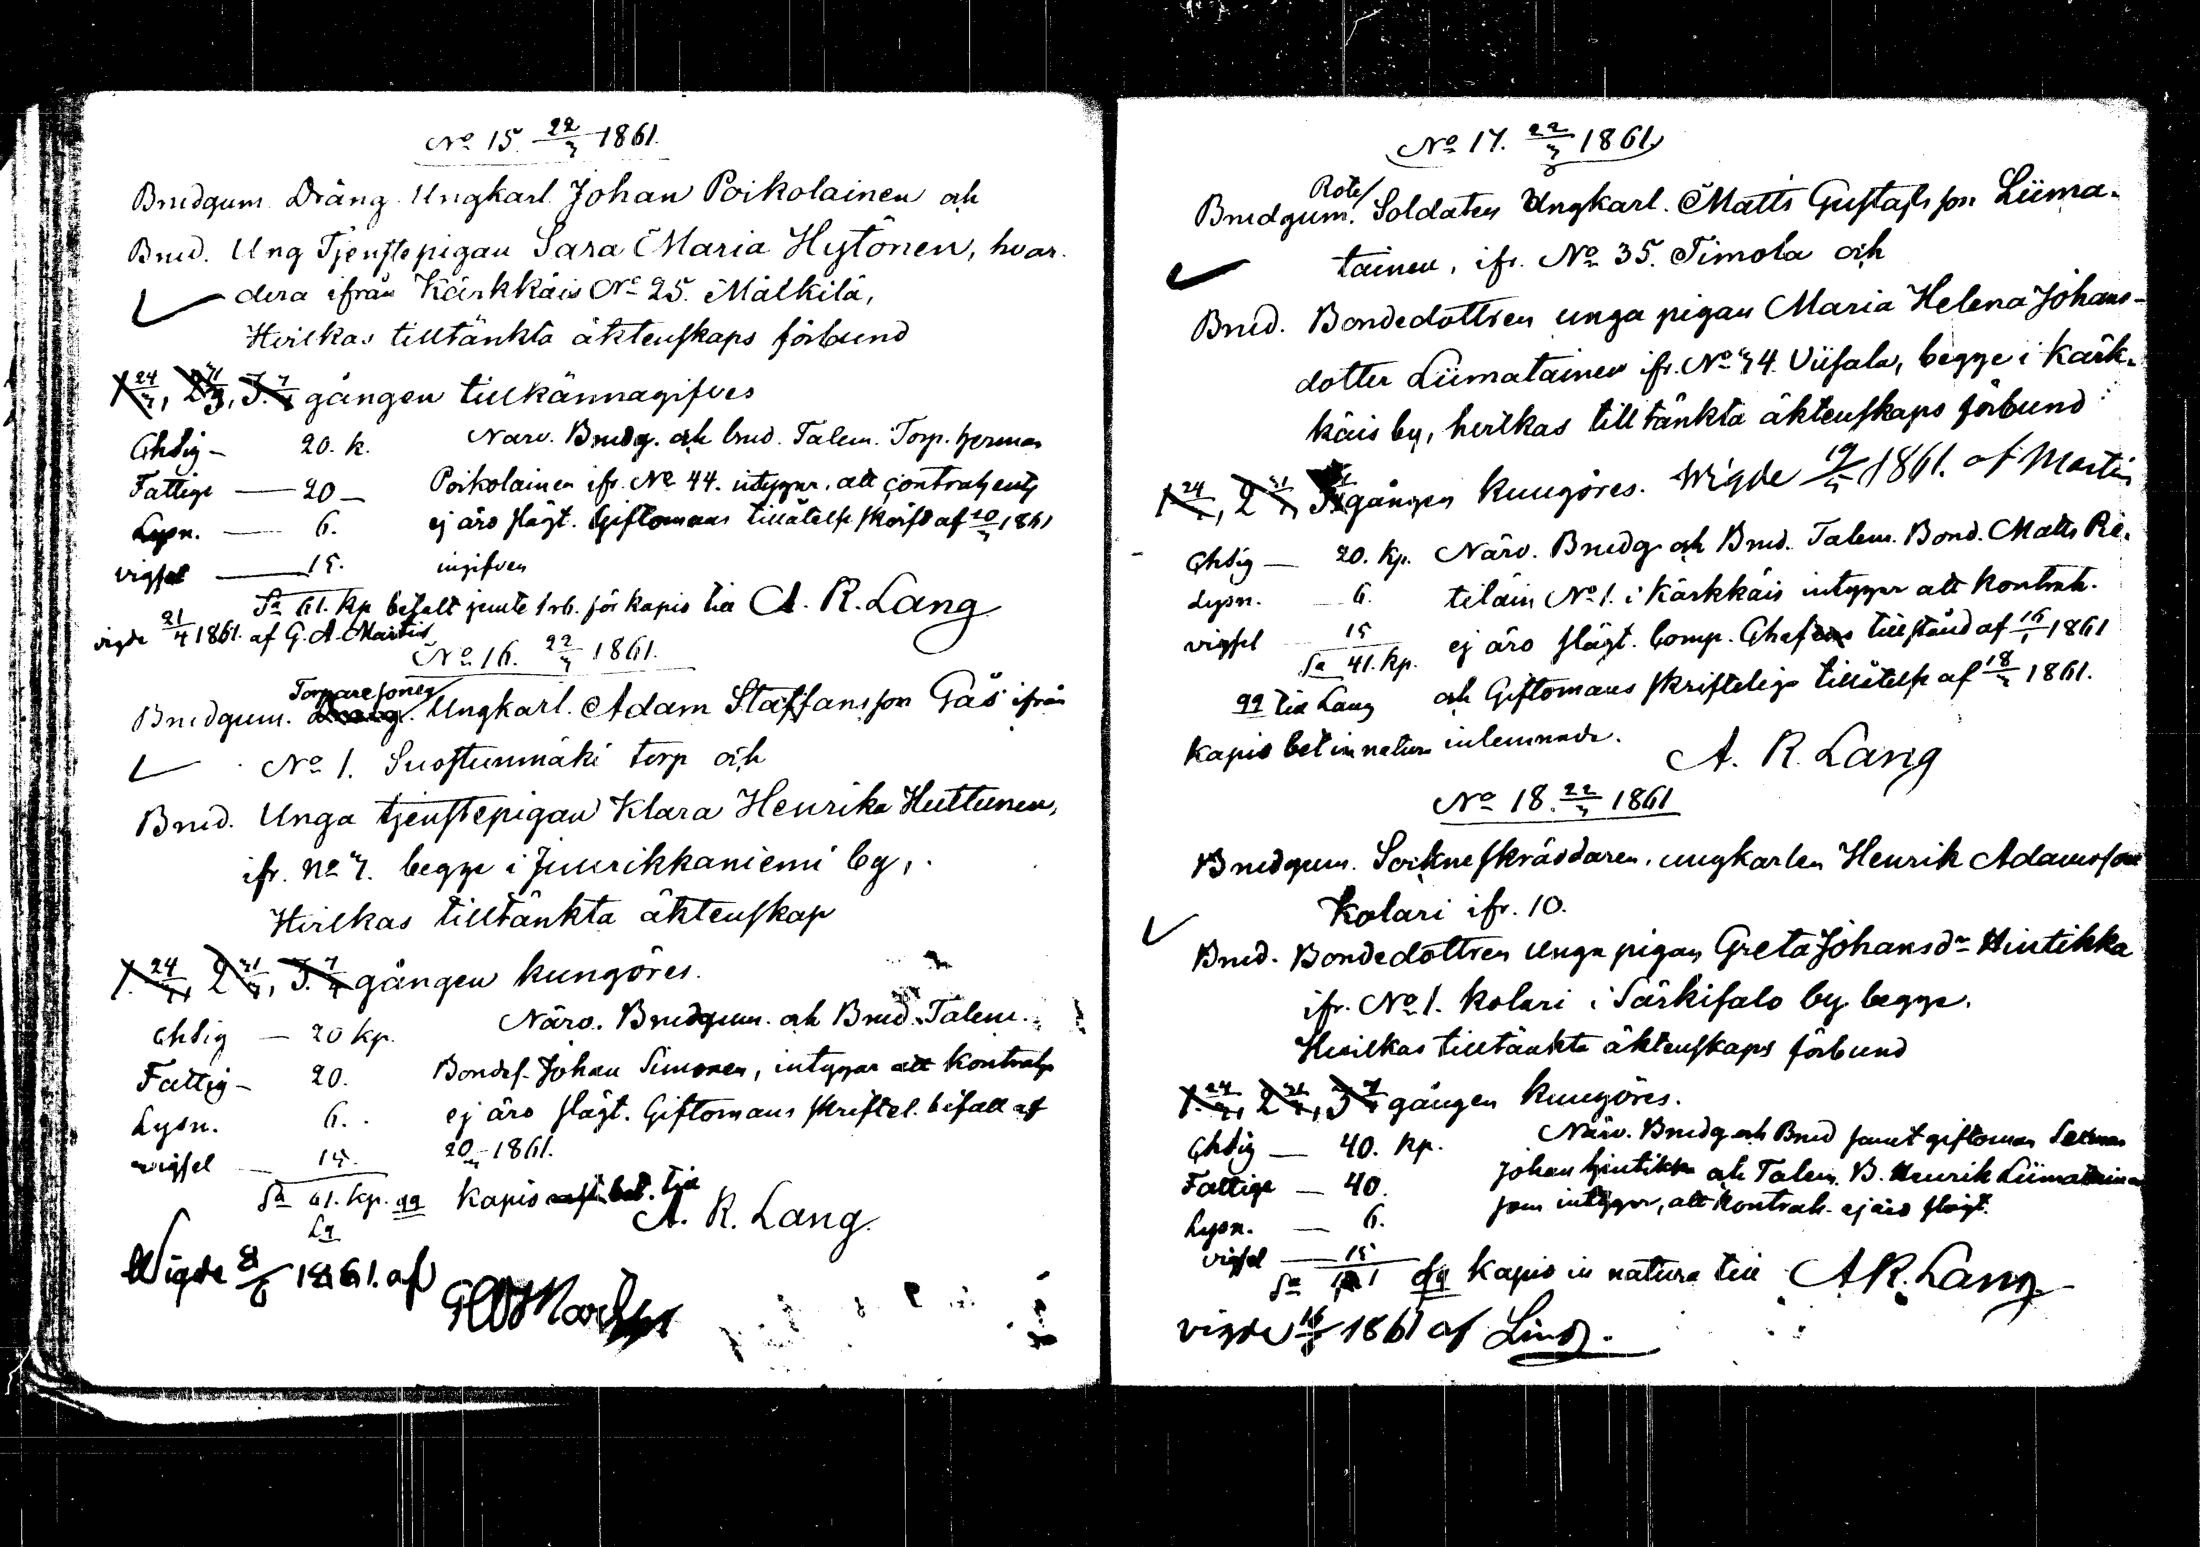 No 15. 22/3 1861.
Brudgum. Dräng. Ungkarl Johan Poikolainen och
Brud. Ung Tjenstepigan Sara Maria Hytönen, hvar-
dera ifrån Kärkkäis No 25. Mälkilä,
Hvilkas tilltänkta äktenskaps förbund
1 24/3, 2 31/3, 3. 7/4 gången tillkännagifves
Ghdig – 20. k. Närv. Brudg. och brud. Talem. Torp. Herman
Fattige — 20 – Poikolainen ifr. No 44. intygar, att contrahenterne
Lysn. — 6. ej äro slägt. Giftomans tillåtelse skrift af 20/3 1861
vigsel — 15. ingifven
Sa 61. kp betalt jemte 1 rb. för kapis till A. R. Lang
vigde 21/4 1861. af G. A. Martin
No 16. 22/3 1861.
Torparesonen
Brudgum. Ungkarl. Adam Staffansson Gås ifrån
No 1. Suostunmäki torp och
Brud. Unga tjenstepigan Klara Henrika Huttunen,
ifr. No 7. begge i Juurikkaniemi by,
Hvilkas tilltänkta äktenskap
1. 24/3, 2 31/3, 3. 7/4 gången kungöres.
Ghdig — 20 kp. Närv. Brudgum. och Brud. Talem.
Fattig – 20. Bondes. Johan Simonen, intygar att kontrah
Lysn. 6. ej äro slägt. Giftomans skriftel. bifall af
vigsel — 15. 20/3 1861.
Sa 61. kp. qq kapis bet. till
Lg A. R. Lang.
Wigde 8/6 1861. af
No 17. 22/3 1861
Rote
Brudgum. Soldaten Ungkarl. Matts Gustafsson Liima-
tainen, ifr. No 35. Timola och
Brud. Bondedottren unga pigan Maria Helena Johans-
dotter Liimatainen ifr. No 74. Viisala, begge i Kärk-
käis by, hvilkas tilltänkta äktenskaps förbund
1 24/3, 2 31/3, 3 gången kungöres. Wigde 19/5 1861. af Martin
Ghdig — 20. kp. Närv. Brudg. och Brud. Talem. Bond. Matts Pie-
Lysn. — 6. tiläin No 1. i Kärkkäis intygar att kontrah.
vigsel 15 ej äro slägt. Comp. Chefens tillstånd af 16/1 1861
Sa 41. kp. och Giftomans skrifteliga tillåtelse af 18/3 1861.
qq till Lang
kapis bet in natura inlemnade. A. R. Lang
No 18. 22/3 1861
Brudgum. Sockneskräddaren, ungkarlen Henrik Adamsson
Kolari ifr. 10.
Brud. Bondedottren unga pigan Greta Johansdr Hintikka
ifr. No 1. Kolari i Särkisalo by begge.
Hvilkas tilltänkta äktenskaps förbund
1. 24/3, 2 31/3, 3 7/4 gången kungöres.
Ghdig — 40. kp. Närv. Brudg och Brud samt giftoman
Fattige — 40. Johan Hintikka och Talem. B. Henrik Liimatainen
Lysn. — 6. som intygar, att kontrah. ej äro slägt.
vigsel — 15
Sa 101 qq kapis in natura till A R. Lang
vigde 16/6 1861 af Lind.